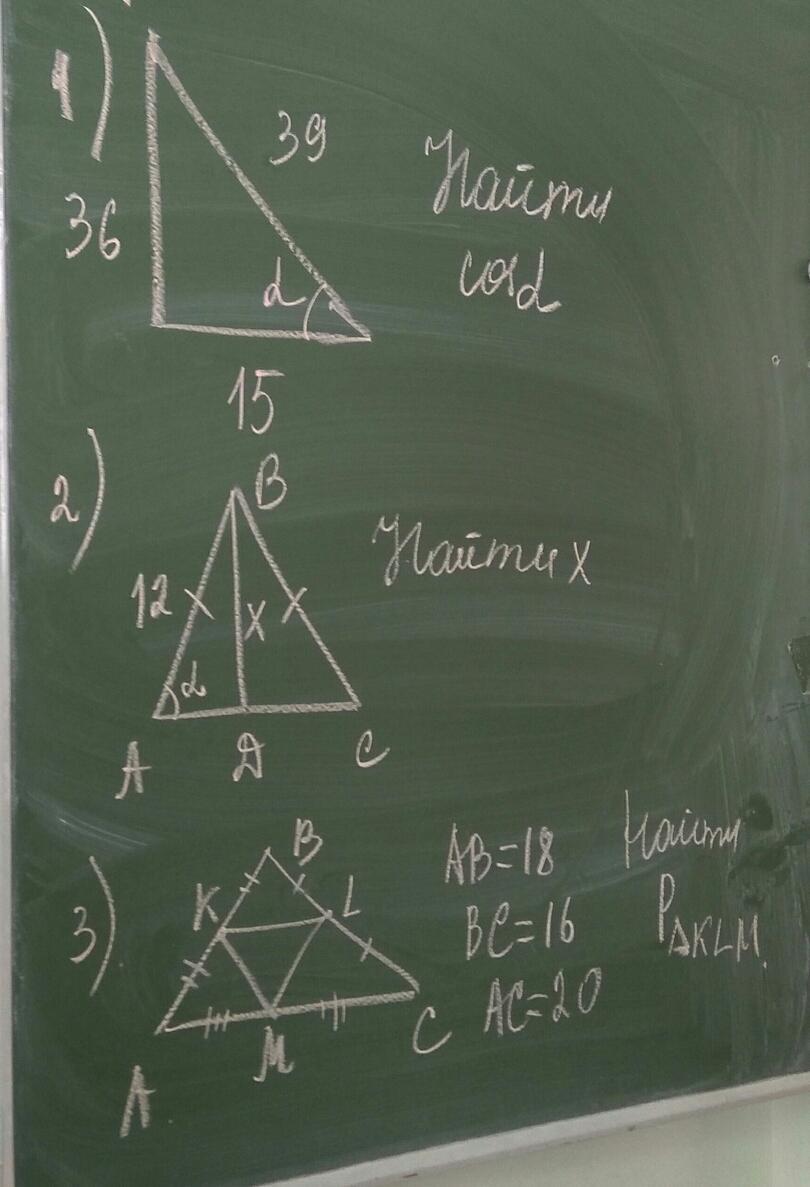 1)
39
36
α
15
Найти
cosα
2)
B
12
x
α
A
D
C
Найти x
3)
B
K
L
A
M
C
AB=18
BC=16
AC=20
Найти
P△KLM.